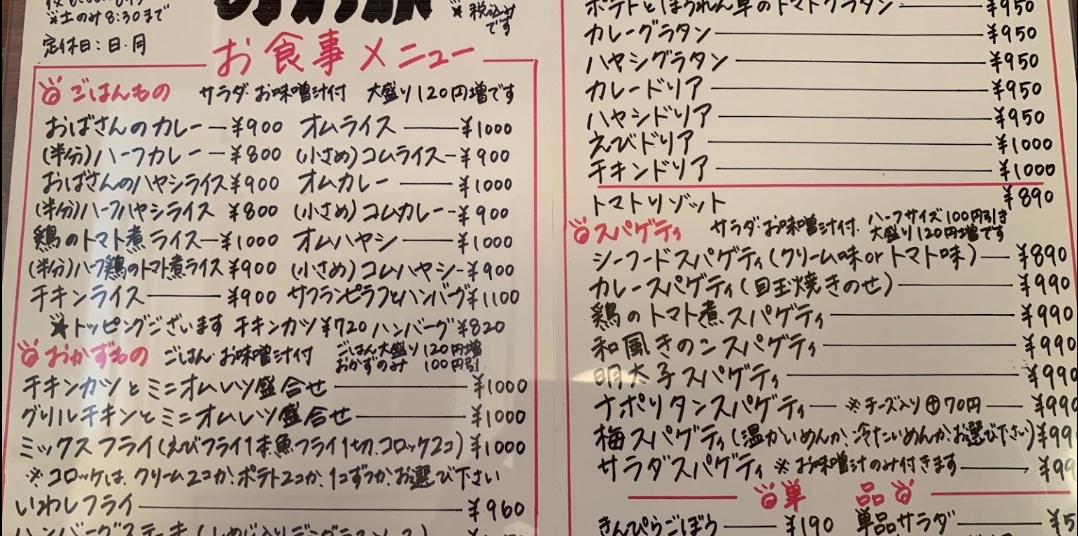 ※土のみ8:30まで
定休日:日・月
※税込み
です
お食事メニュー
ごはんもの サラダ・お味噌汁付 大盛り120円増です
おばさんのカレー ¥900 オムライス ¥1000
(半分)ハーフカレー ¥800 (小さめ)コムライス ¥900
おばさんのハヤシライス ¥900 オムカレー ¥1000
(半分)ハーフハヤシライス ¥800 (小さめ)コムカレー ¥900
鶏のトマト煮ライス ¥1000 オムハヤシ ¥1000
(半分)ハーフ鶏のトマト煮ライス ¥900 (小さめ)コムハヤシ ¥900
チキンライス ¥900 サフランピラフとハンバーグ ¥1100
★トッピングございます チキンカツ ¥720 ハンバーグ ¥820
おかずもの ごはん・お味噌汁付 ごはん大盛り120円増
おかずのみ 100円引
チキンカツとミニオムレツ盛合せ ¥1000
グリルチキンとミニオムレツ盛合せ ¥1000
ミックスフライ(えびフライ1本魚フライ1切、コロッケ2コ) ¥1000
※コロッケは、クリーム2コか、ポテト2コか、1コずつか、お選び下さい
いわしフライ ¥960
ポテトとほうれん草のトマトグラタン ¥950
カレーグラタン ¥950
ハヤシグラタン ¥950
カレードリア ¥950
ハヤシドリア ¥950
えびドリア ¥1000
チキンドリア ¥1000
トマトリゾット ¥890
スパゲティ サラダ・お味噌汁付. ハーフサイズ100円引き
大盛り120円増です
シーフードスパゲティ(クリーム味orトマト味) ¥890
カレースパゲティ(目玉焼きのせ) ¥990
鶏のトマト煮スパゲティ ¥990
和風きのこスパゲティ ¥990
明太子スパゲティ ¥990
ナポリタンスパゲティ ※チーズ入り⊕70円 ¥990
梅スパゲティ(温かいめんか、冷たいめんか、お選び下さい) ¥99
サラダスパゲティ ※お味噌汁のみ付きます ¥99
単品
きんぴらごぼう ¥190 単品サラダ ¥5